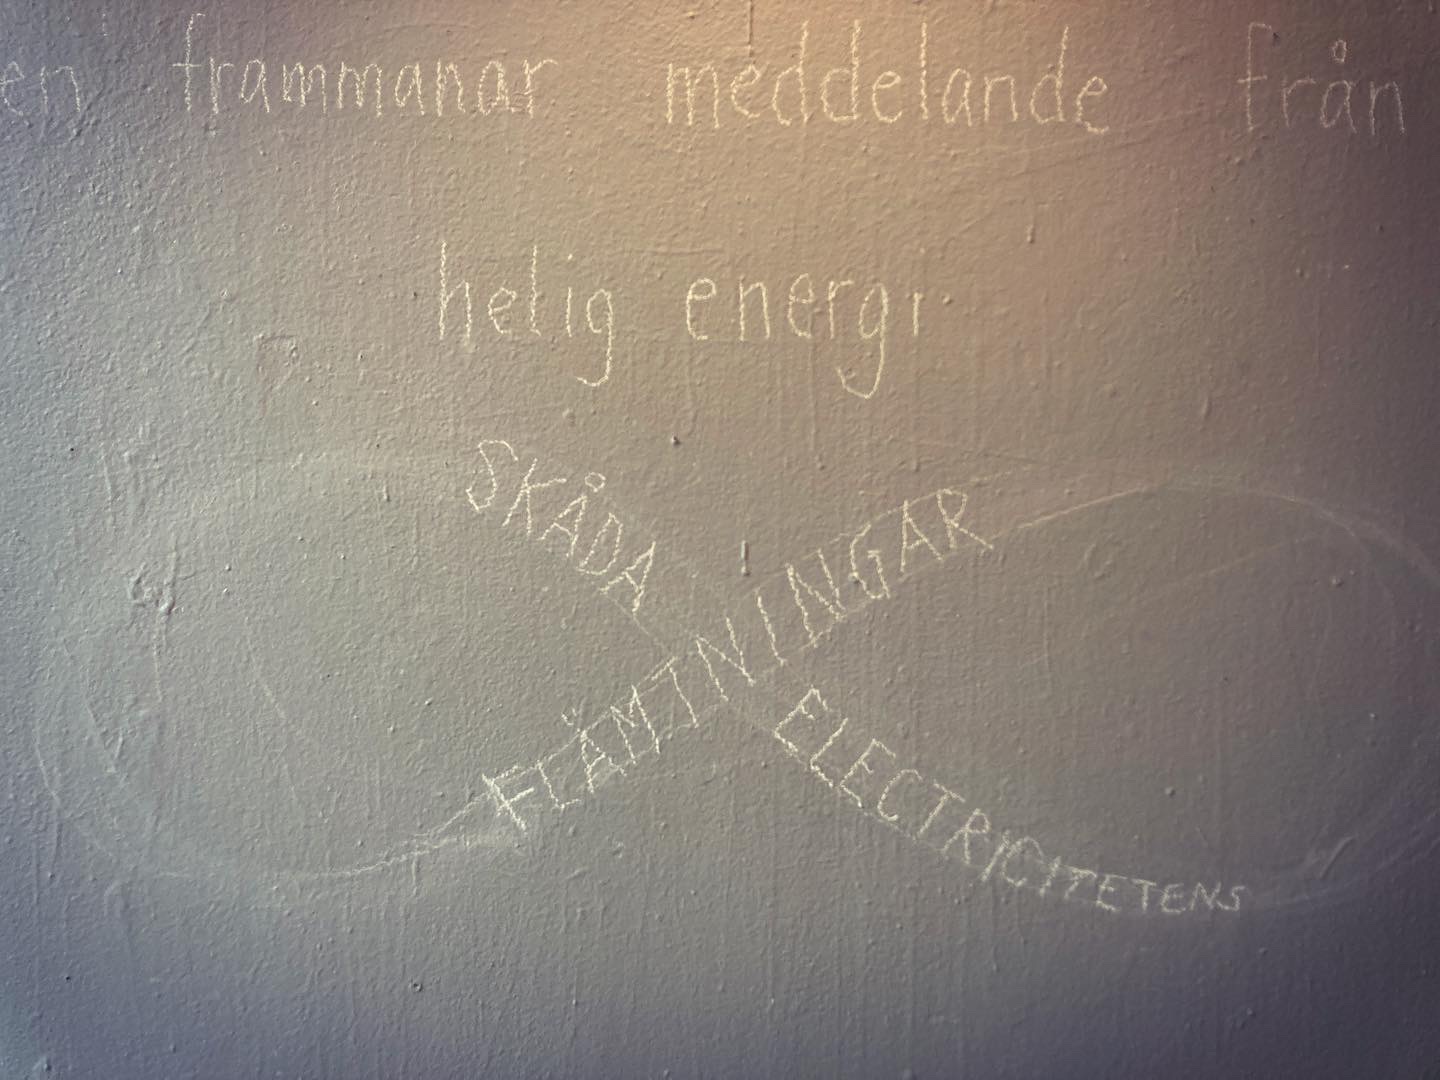 en frammanar meddelande från
helig energi
SKÅDA
FLÄMTNINGAR
ELECTRICITETENS